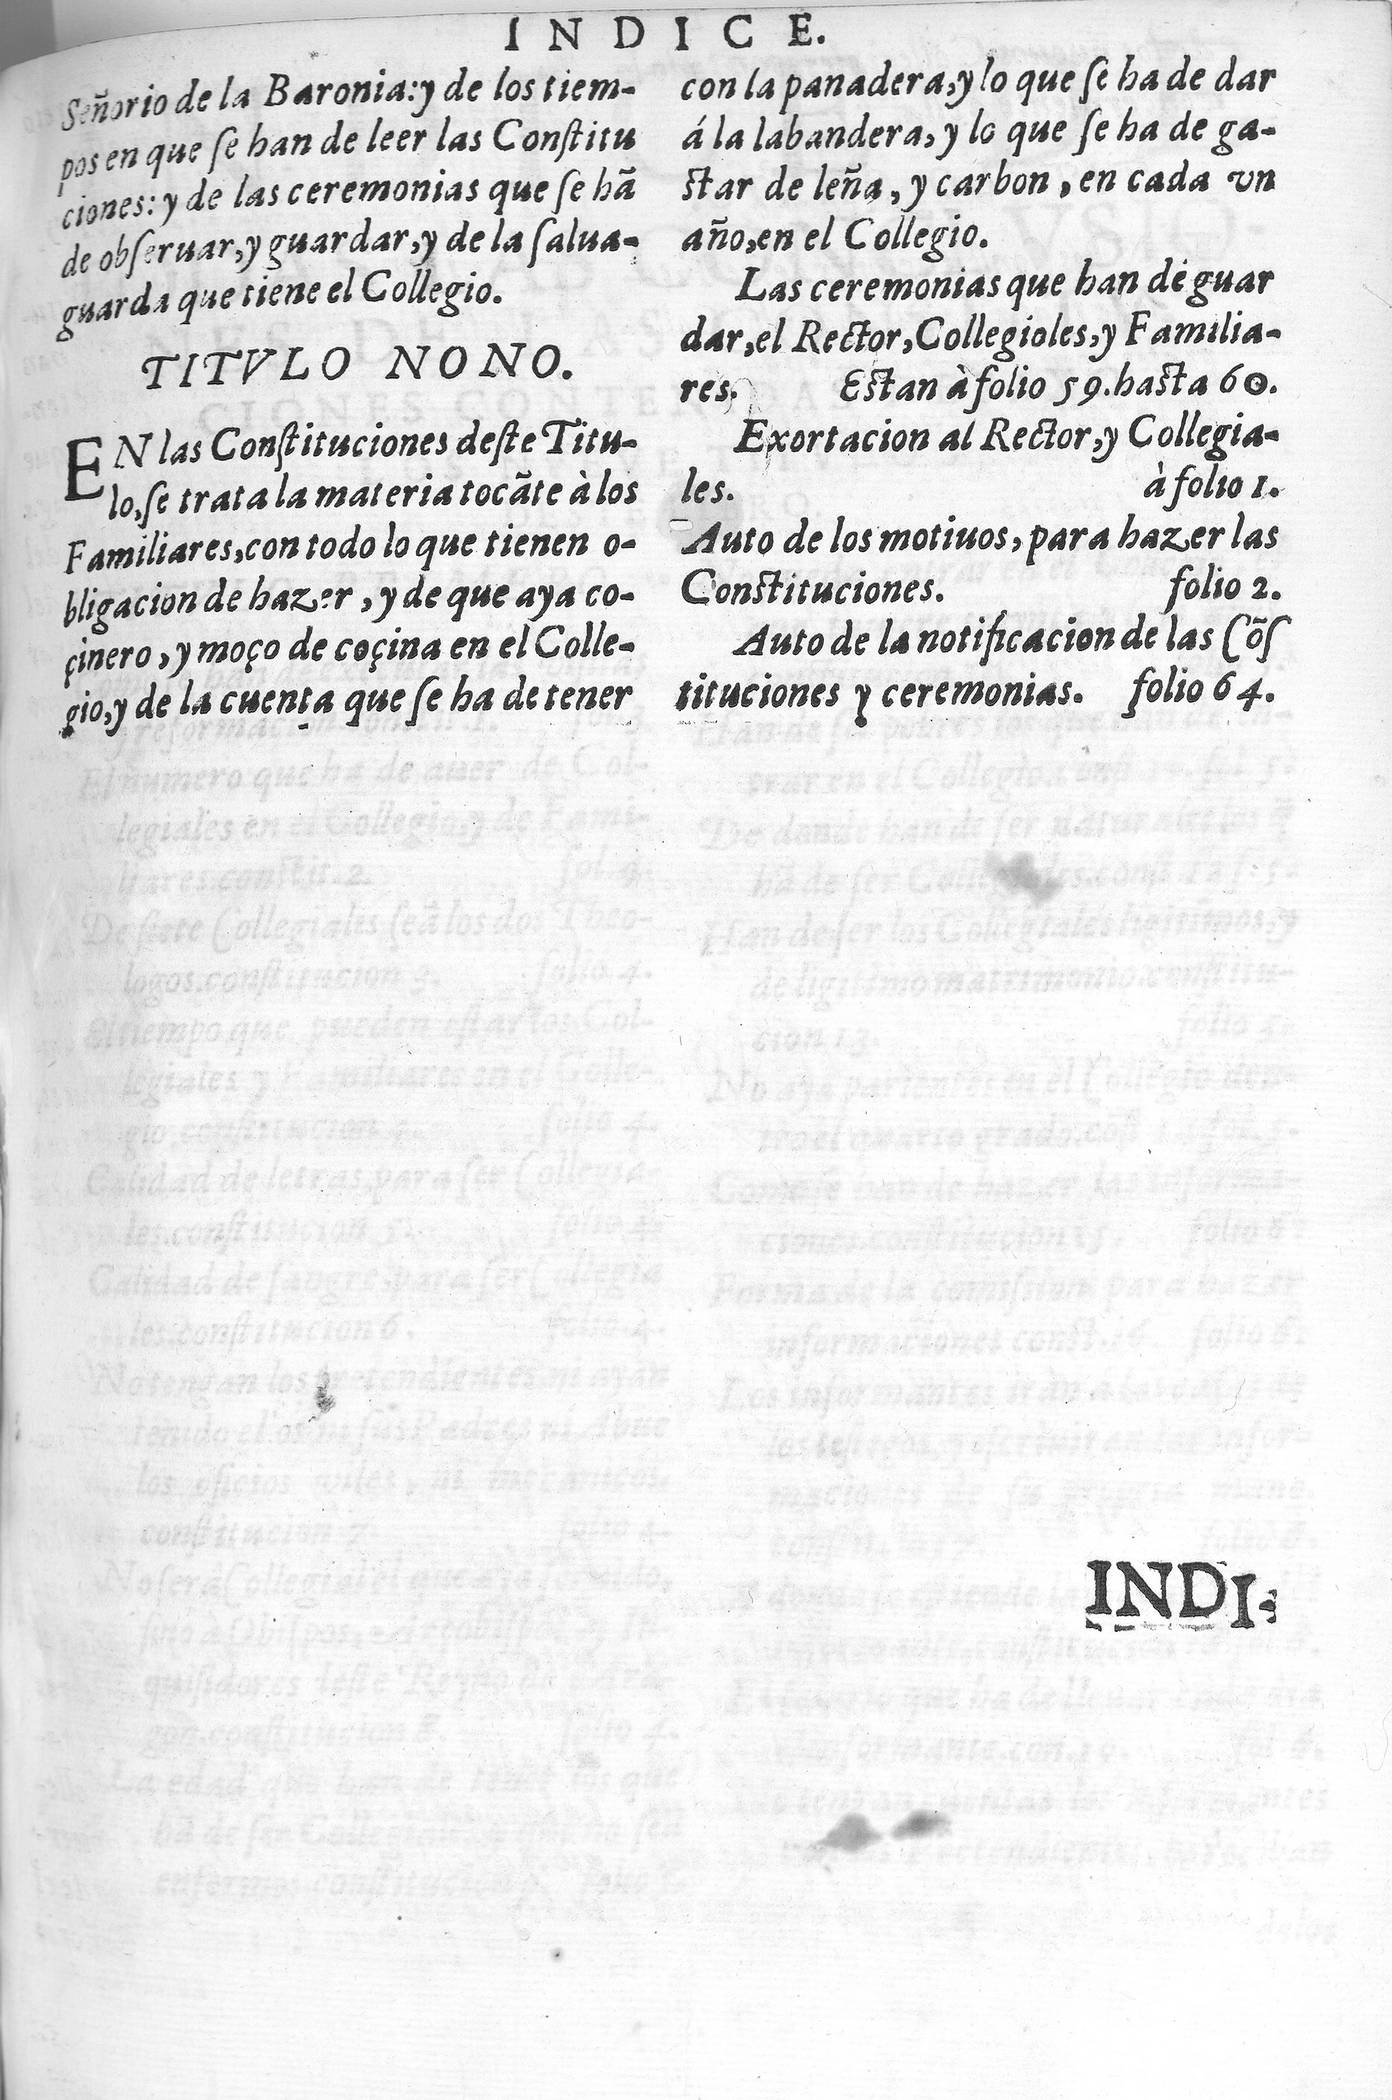 INDICE.
Señorio de la Baronia: y de los tiem-
pos en que ſe han de leer las Conſtitu
ciones: y de las ceremonias que ſe hã
de obſeruar, y guardar, y de la ſalua-
guarda que tiene el Collegio.
TITVLO NONO.
EN las Conſtituciones deſte Titu-
lo, ſe trata la materia tocãte à los
Familiares, con todo lo que tienen o-
bligacion de hazer, y de que aya co-
çinero, y moço de coçina en el Colle-
gio, y de la cuenta que ſe ha de tener
con la panadera, y lo que ſe ha de dar
á la labandera, y lo que ſe ha de ga-
ſtar de leña, y carbon, en cada vn
año, en el Collegio.
Las ceremonias que han de guar
dar, el Rector, Collegioles, y Familia-
res. Eſtan à folio 59. haſta 60.
Exortacion al Rector, y Collegia-
les. à folio 1.
Auto de los motiuos, para hazer las
Conſtituciones. folio 2.
Auto de la notificacion de las Cõſ
tituciones y ceremonias. folio 64.
INDI-